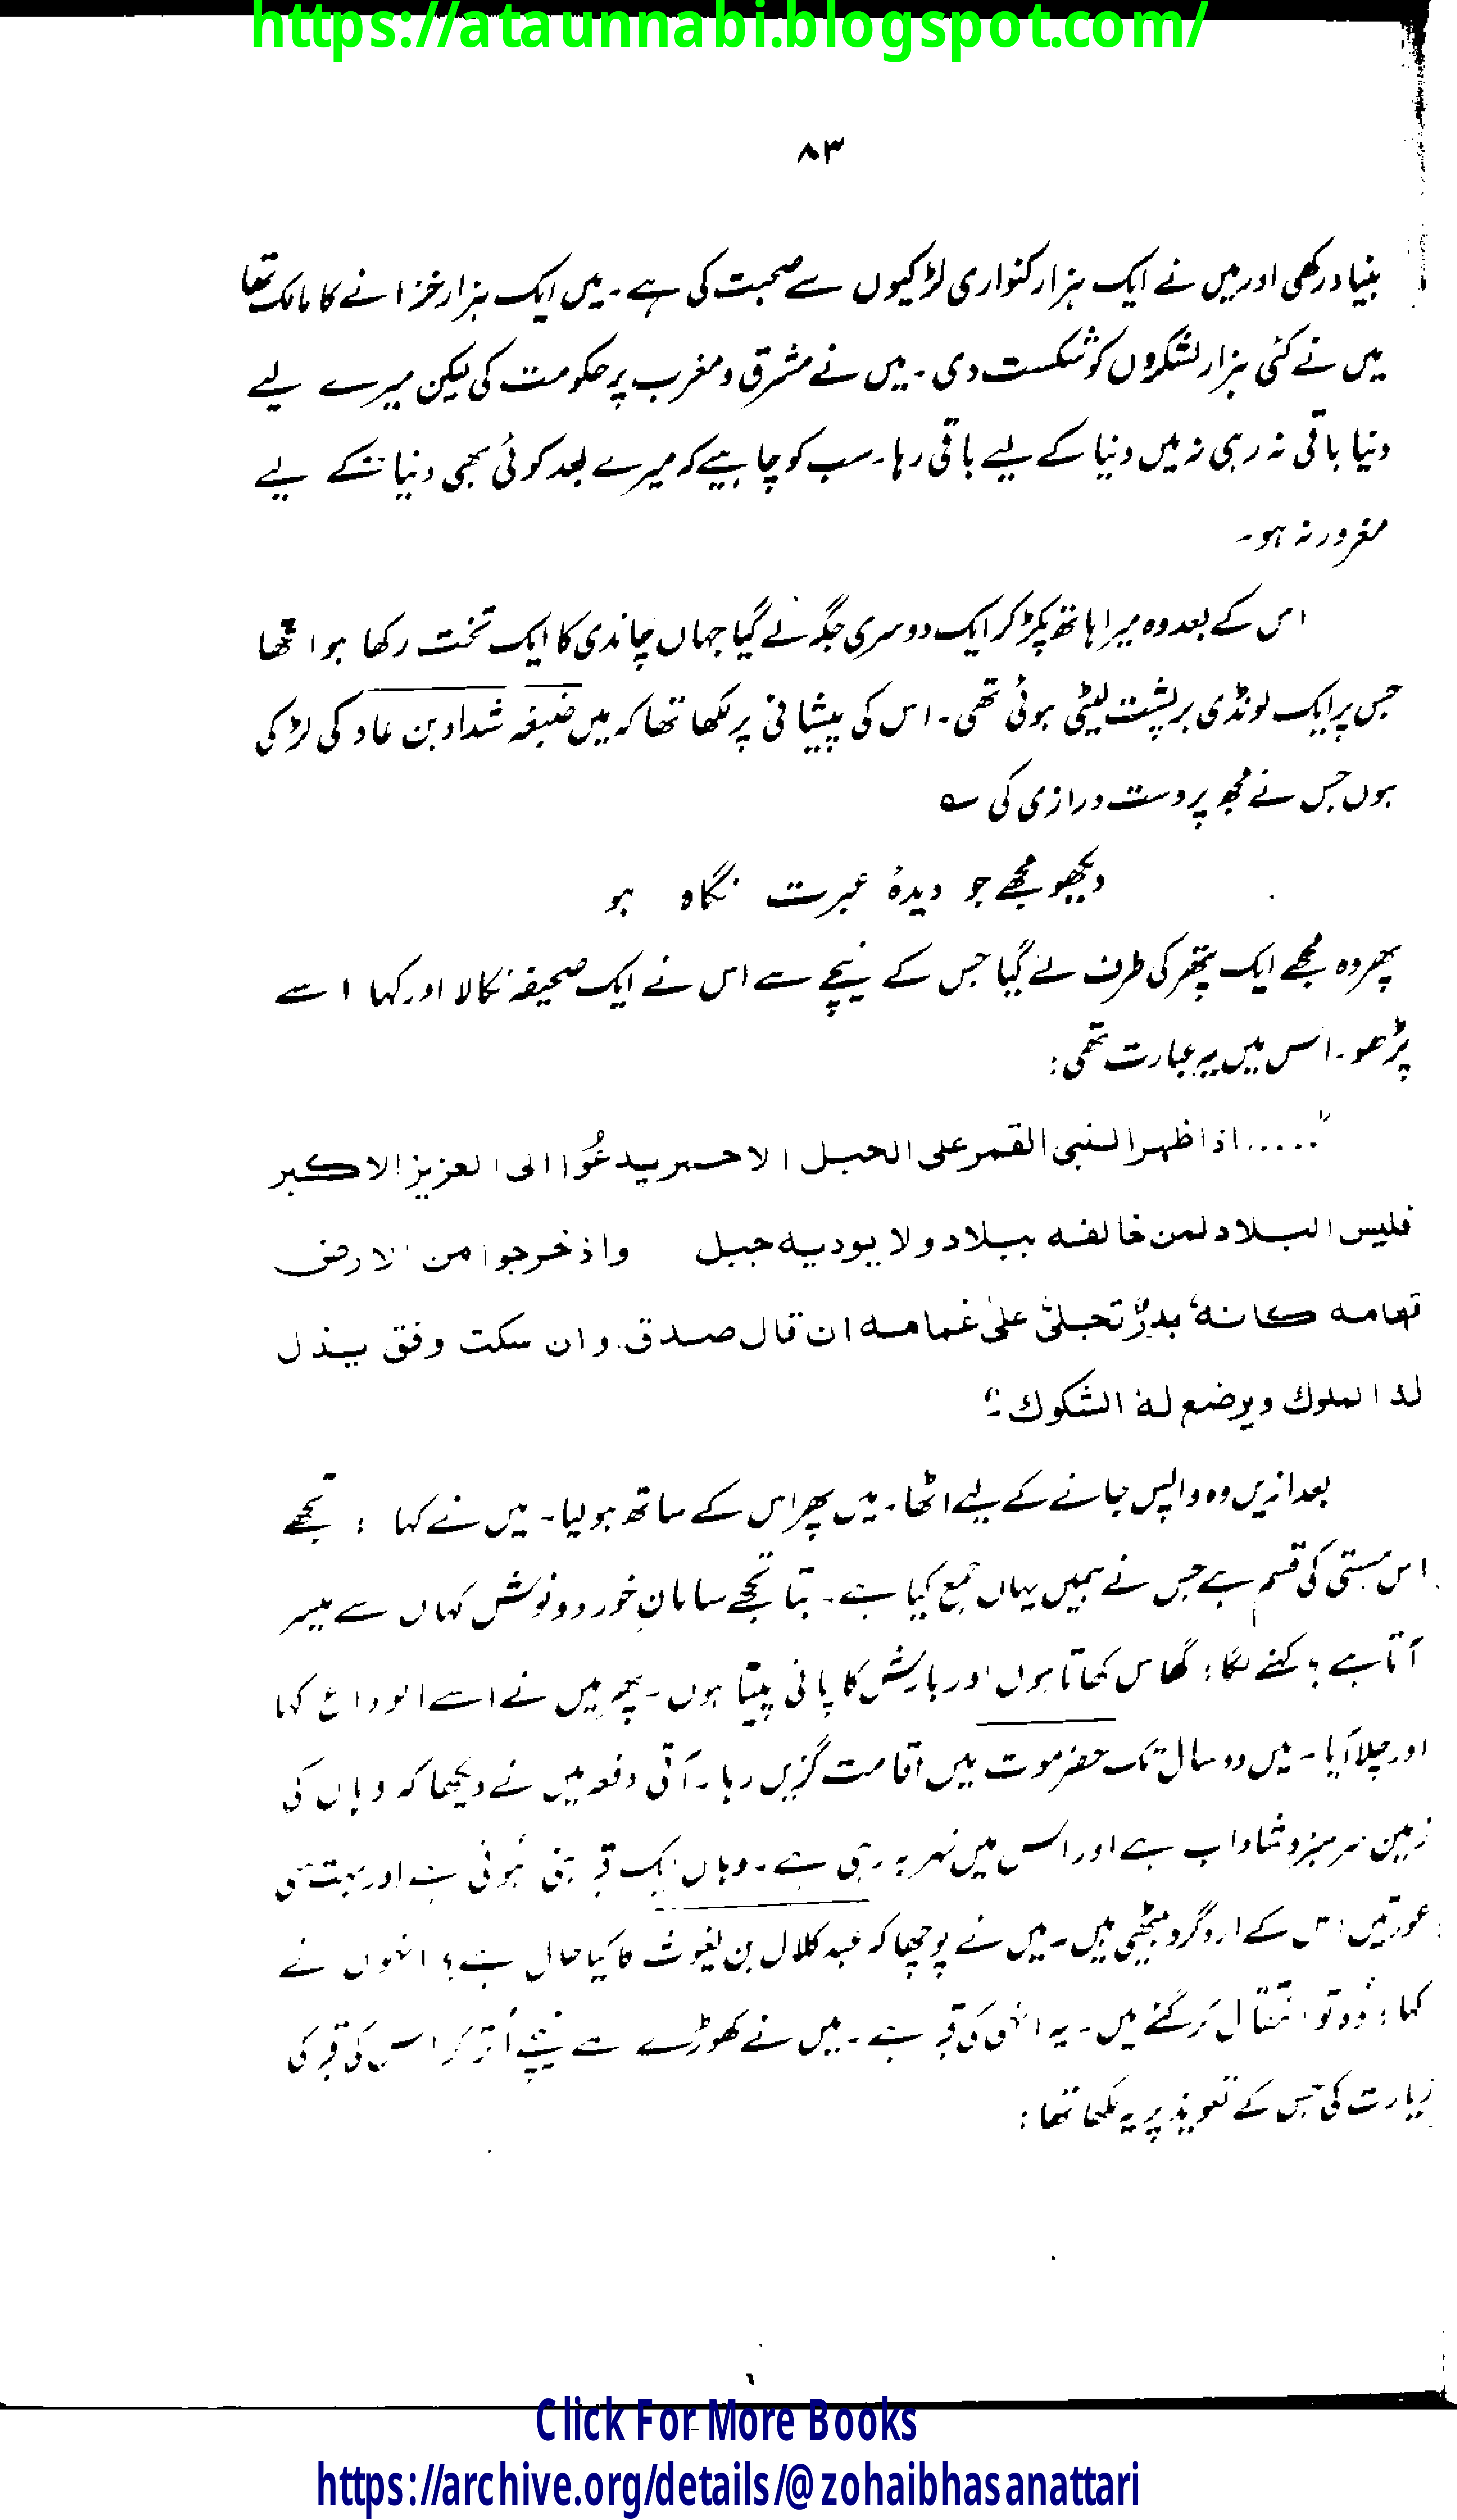 https://ataunnabi.blogspot.com/
۸۳
بنیاد رکھی اور میں نے ایک ہزار کنواری لڑکیوں سے صحبت کی ہے۔ میں ایک ہزار خزانے کا مالک تھا
میں نے کئی ہزار لشکروں کو شکست دی۔ میں نے مشرق و مغرب پر حکومت کی لیکن میرے لیے
دنیا باقی نہ رہی نہ میں دنیا کے لیے باقی رہا۔ سب کو چاہیے کہ میرے بعد کوئی بھی دنیا کے لیے
مغرور نہ ہو۔
اس کے بعد وہ میرا ہاتھ پکڑ کر ایک دوسری جگہ لے گیا جہاں چاندی کا ایک تخت رکھا ہوا تھا
جس پر ایک لونڈی بر پشت لیٹی ہوئی تھی۔ اس کی پیشانی پر لکھا تھا کہ میں ضبغہ شداد بن عاد کی لڑکی
ہوں جس نے مجھ پر دست درازی کی ؎
دیکھو مجھے جو دیدۂ عبرت نگاہ ہو
پھر وہ مجھے ایک پتھر کی طرف لے گیا جس کے نیچے سے اس نے ایک صحیفہ نکالا اور کہا اسے
پڑھو۔ اس میں یہ عبارت تھی:
"..... اذا ظهر النبی القمر علی الحبل الاحمر یدعُوا الی العزیز الاکبر
فلیس البلاد لمن خالفه ببلاد ولا یودیه جبل واذ خرجوا من الارض
تهامه کانهٗ بدرٌ تجلیٰ علیٰ غمامه ان قال صدق وان سکت وفق یذل
لد الملوك ویوضع لهٗ الشکوك۔"
بعد ازیں وہ واپس جانے کے لیے اٹھا۔ میں پھر اس کے ساتھ ہو لیا۔ میں نے کہا : تجھے
اس ہستی کی قسم ہے جس نے ہمیں یہاں جمع کیا ہے۔ بتا تجھے سامانِ خورد و نوش کہاں سے میسر
آتا ہے؟ کہنے لگا: گھاس کھاتا ہوں اور بارش کا پانی پیتا ہوں۔ پھر میں نے اسے الوداع کہا
اور چلا آیا۔ میں دو سال تک حضرموت میں اقامت گزیں رہا۔ آتی دفعہ میں نے دیکھا کہ وہاں کی
زمین سرسبز و شاداب ہے اور اس میں نہر بہ رہی ہے۔ وہاں ایک قبر بنی ہوئی ہے اور بہت سی
عورتیں اس کے ارد گرد بیٹھی ہیں۔ میں نے پوچھا کہ عبد کلال بن یغوث کا کیا حال ہے؟ انہوں نے
کہا: وُہ تو انتقال کر گئے ہیں۔ یہ انہی کی قبر ہے۔ میں نے گھوڑے سے نیچے اُتر کر اس کی قبر کی
زیارت کی جس کے تعویذ پر یہ لکھا تھا:
Click For More Books
https://archive.org/details/@zohaibhasanattari